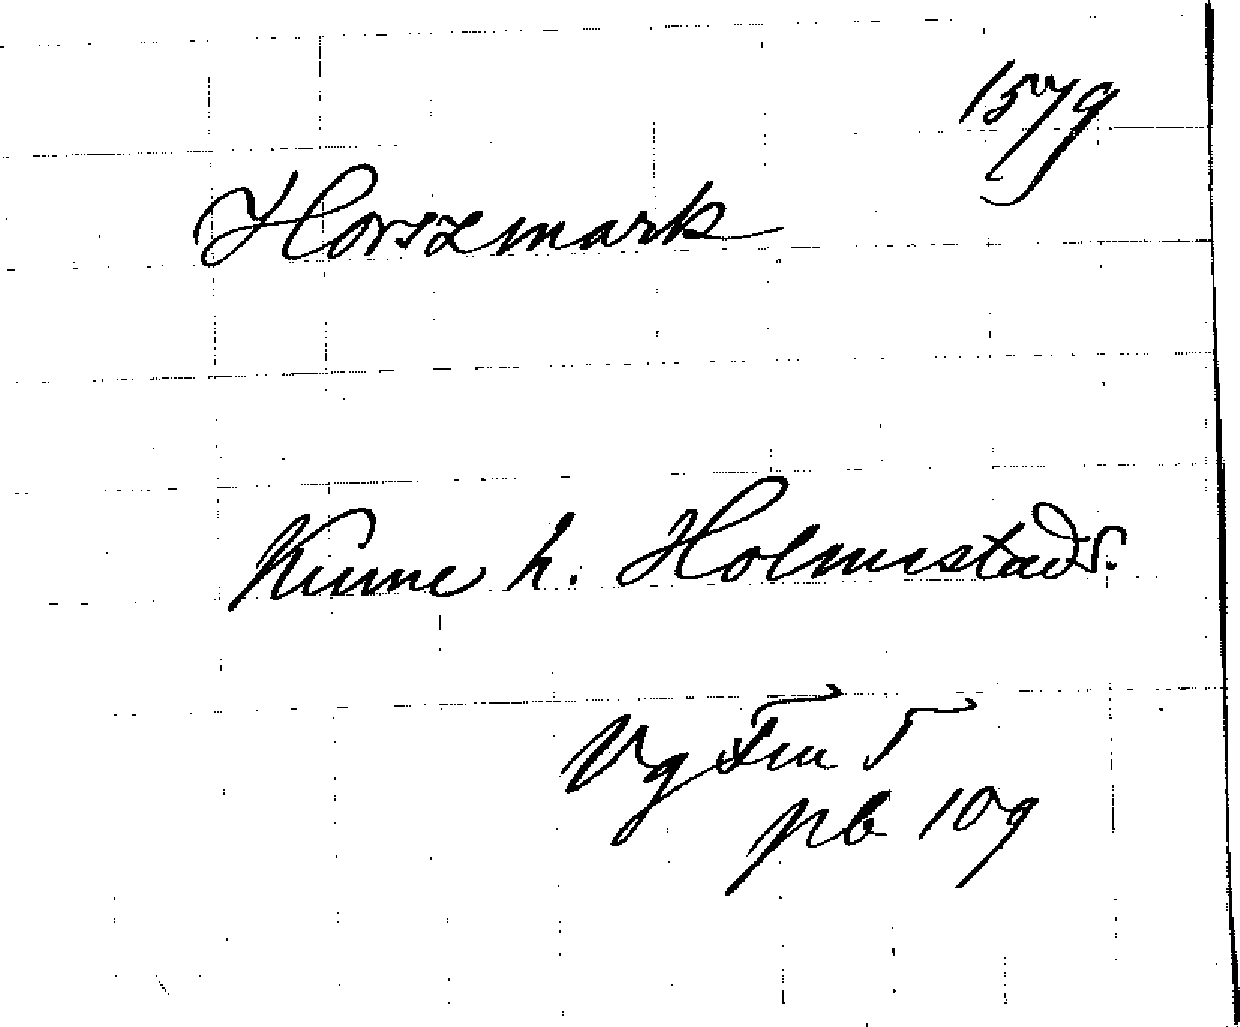 1579
Horszmark
Kinne h. Holmestads.
Vg Fru 5
pb 109